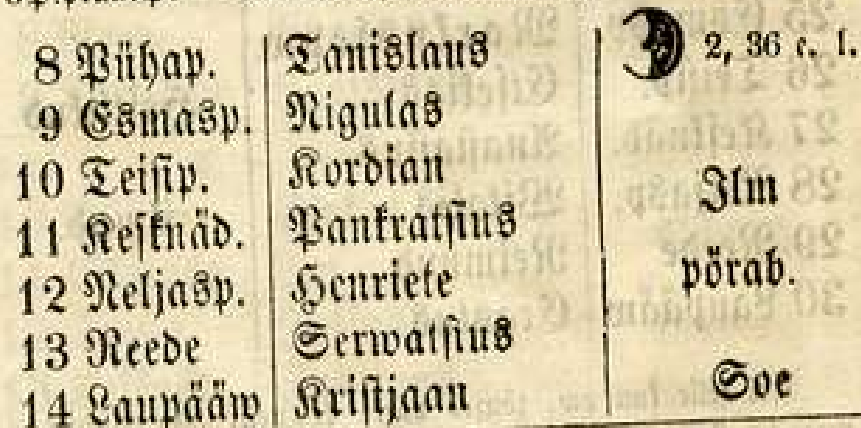 8 Pühap. Tanislaus 2, 36 e. l.
9 Esmasp. Nigulas
10 Teisip. Kordian Ilm
11 Kesknäd. Pankratsius
12 Neljasp. Henriete pörab.
13 Reede Serwatsius
14 Laupääw Kristjaan Soe